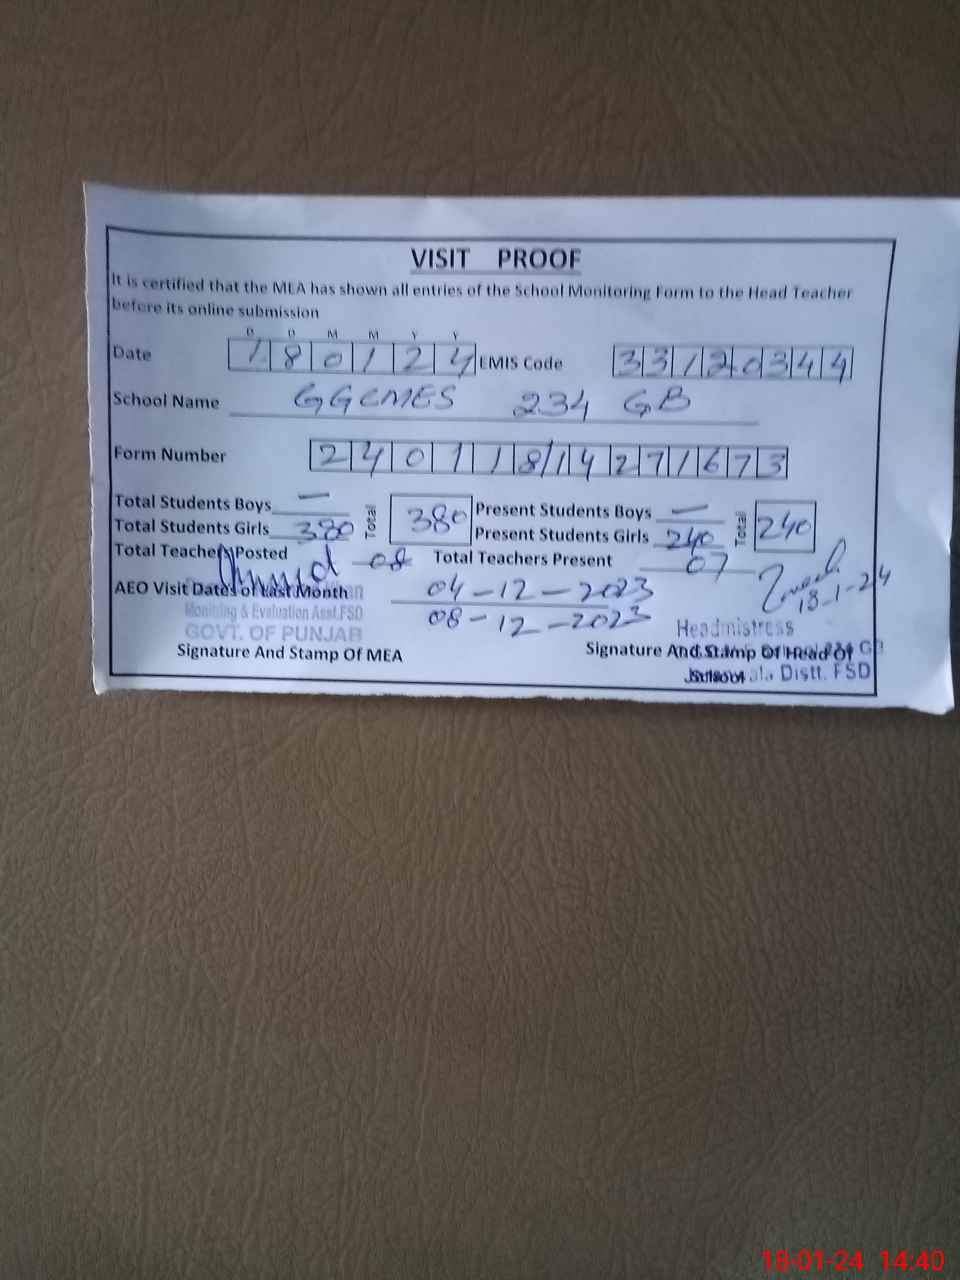 VISIT PROOF
It is certified that the MEA has shown all entries of the School Monitoring Form to the Head Teacher
before its online submission
D D M M Y Y
Date 180124 EMIS Code 33120344
School Name GGCMES 234 GB
Form Number 24011814271673
Total Students Boys — Total 380 Present Students Boys — Total 240
Total Students Girls 380 Present Students Girls 240
Total Teachers Posted 08 Total Teachers Present 07
AEO Visit Dates of Last Month 04-12-2023
18-1-24
08-12-2023
Monitring & Evaluation Asst.FSD
GOVT. OF PUNJAB
Headmistress
Signature And Stamp Of MEA
Signature And Stamp Of Head Of
School
Distt. FSD
18-01-24 14:40